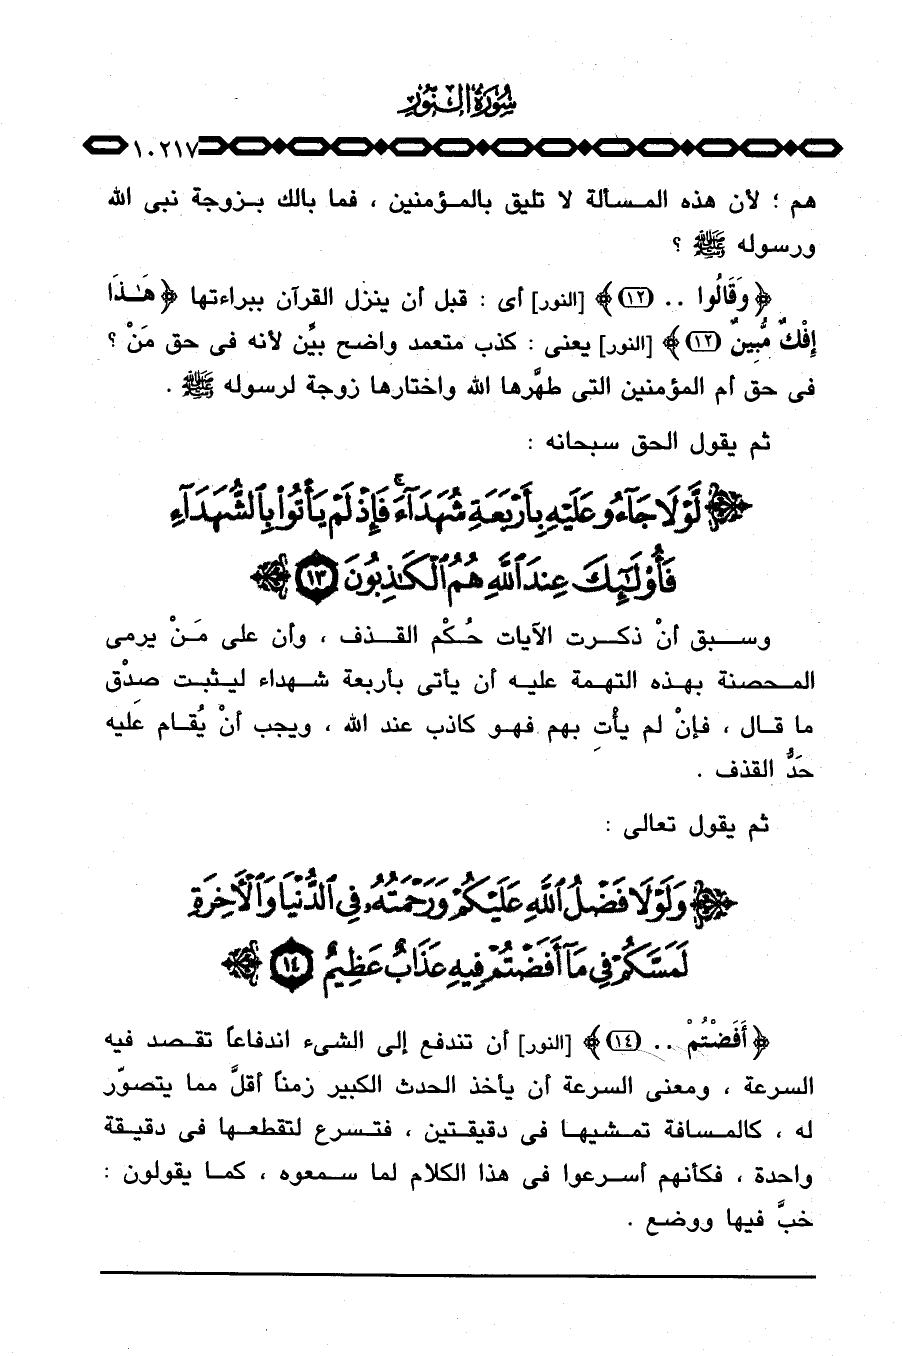 سُورَةُ النُّورِ
١٠٢١٧
هم ؛ لأن هذه المسألة لا تليق بالمؤمنين ، فما بالك بزوجة نبى الله
ورسوله ﷺ ؟
﴿وَقَالُوا .. (١٢)﴾ [النور] أى : قبل أن ينزل القرآن ببراءتها ﴿هَٰذَا
إِفْكٌ مُّبِينٌ (١٢)﴾ [النور] يعنى : كذب متعمد واضح بيِّن لأنه فى حق مَنْ ؟
فى حق أم المؤمنين التى طهَّرها الله واختارها زوجة لرسوله ﷺ .
ثم يقول الحق سبحانه :
﴿لَّوْلَا جَآءُو عَلَيْهِ بِأَرْبَعَةِ شُهَدَآءَ ۚ فَإِذْ لَمْ يَأْتُوا۟ بِٱلشُّهَدَآءِ
فَأُو۟لَٰٓئِكَ عِندَ ٱللَّهِ هُمُ ٱلْكَٰذِبُونَ ١٣﴾
وسبق أنْ ذكرت الآيات حُكْم القذف ، وأن على مَنْ يرمى
المحصنة بهذه التهمة عليه أن يأتى بأربعة شهداء ليثبت صدْق
ما قال ، فإنْ لم يأْتِ بهم فهو كاذب عند الله ، ويجب أنْ يُقام عليه
حَدُّ القذف .
ثم يقول تعالى :
﴿وَلَوْلَا فَضْلُ ٱللَّهِ عَلَيْكُمْ وَرَحْمَتُهُۥ فِى ٱلدُّنْيَا وَٱلْأَخِرَةِ
لَمَسَّكُمْ فِى مَآ أَفَضْتُمْ فِيهِ عَذَابٌ عَظِيمٌ ١٤﴾
﴿أَفَضْتُمْ .. (١٤)﴾ [النور] أن تندفع إلى الشىء اندفاعاً تقصد فيه
السرعة ، ومعنى السرعة أن يأخذ الحدث الكبير زمناً أقلَّ مما يتصوَّر
له ، كالمسافة تمشيها فى دقيقتين ، فتسرع لتقطعها فى دقيقة
واحدة ، فكأنهم أسرعوا فى هذا الكلام لما سمعوه ، كما يقولون :
خبَّ فيها ووضع .